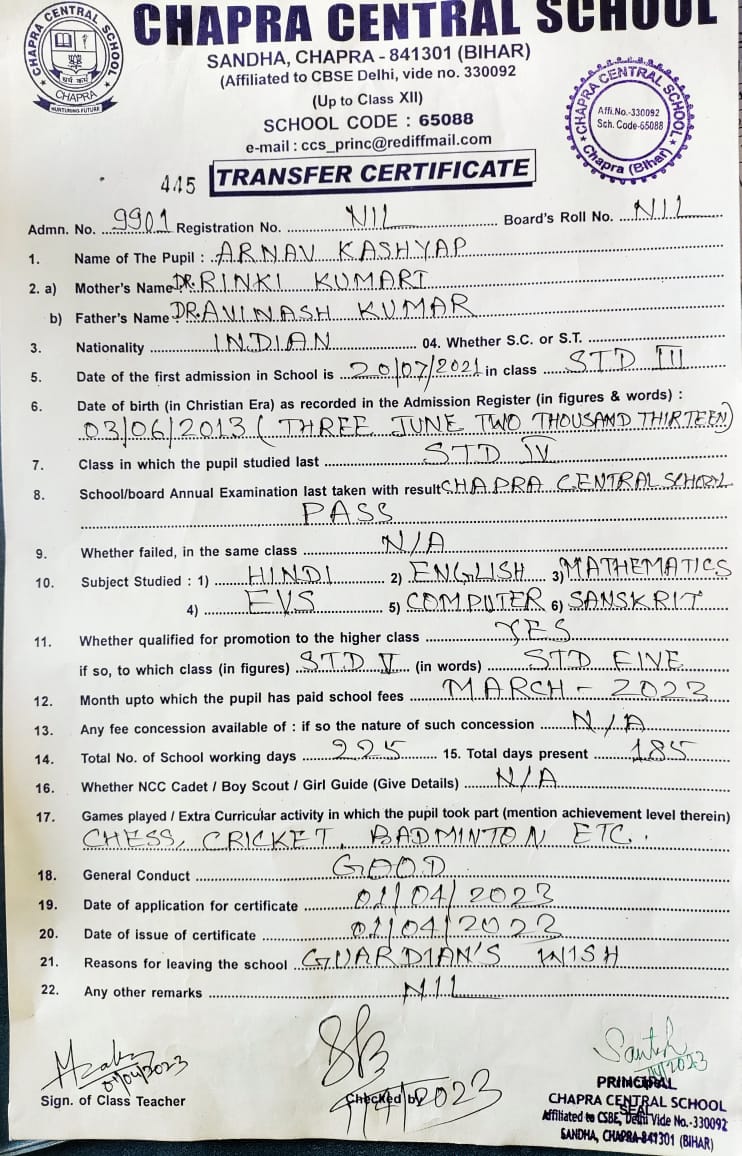 CHAPRA CENTRAL SCHOOL
CHAPRA CENTRAL SCHOOL
CHAPRA
NURTURING FUTURE
SANDHA, CHAPRA - 841301 (BIHAR)
(Affiliated to CBSE Delhi, vide no. 330092
(Up to Class XII)
SCHOOL CODE : 65088
e-mail : ccs_princ@rediffmail.com
CHAPRA CENTRAL SCHOOL
Affi.No.-330092
Sch. Code-65088
Chapra (Bihar)
445 TRANSFER CERTIFICATE
Admn. No. 9901 Registration No. NIL Board's Roll No. NIL
1. Name of The Pupil : ARNAV KASHYAP
2. a) Mother's Name DR. RINKI KUMARI
b) Father's Name DR. AVINASH KUMAR
3. Nationality INDIAN 04. Whether S.C. or S.T.
5. Date of the first admission in School is 20/07/2021 in class STD III
6. Date of birth (in Christian Era) as recorded in the Admission Register (in figures & words) :
03/06/2013 ( THREE JUNE TWO THOUSAND THIRTEEN)
7. Class in which the pupil studied last STD IV
8. School/board Annual Examination last taken with result CHAPRA CENTRAL SCHOOL
PASS
9. Whether failed, in the same class N/A
10. Subject Studied : 1) HINDI 2) ENGLISH 3) MATHEMATICS
4) EVS 5) COMPUTER 6) SANSKRIT
11. Whether qualified for promotion to the higher class YES
if so, to which class (in figures) STD V (in words) STD FIVE
12. Month upto which the pupil has paid school fees MARCH - 2023
13. Any fee concession available of : if so the nature of such concession N/A
14. Total No. of School working days 225 15. Total days present 185
16. Whether NCC Cadet / Boy Scout / Girl Guide (Give Details) N/A
17. Games played / Extra Curricular activity in which the pupil took part (mention achievement level therein)
CHESS, CRICKET, BADMINTON ETC.
18. General Conduct GOOD
19. Date of application for certificate 01/04/2023
20. Date of issue of certificate 01/04/2023
21. Reasons for leaving the school GUARDIAN'S WISH
22. Any other remarks NIL
01/04/2023
Sign. of Class Teacher
Checked by
Santosh
PRINCIPAL
SEAL
CHAPRA CENTRAL SCHOOL
Affiliated to CSBE, Delhi Vide No.-330092
SANDHA, CHAPRA-841301 (BIHAR)